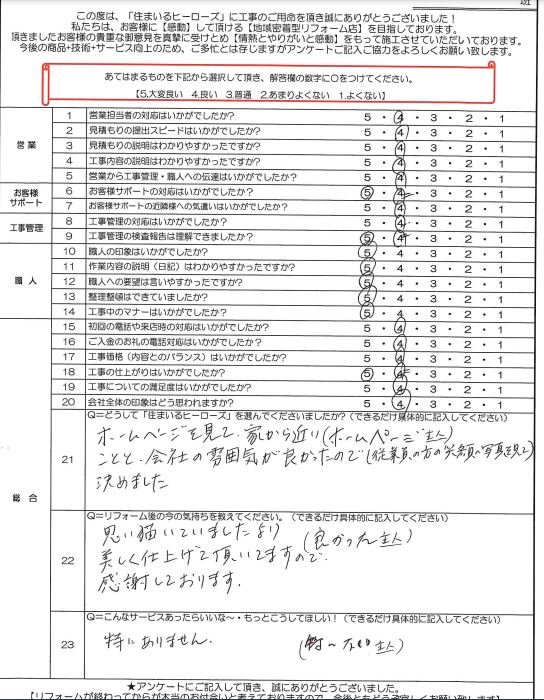 班
この度は、「住まいるヒーローズ」に工事のご用命を頂き誠にありがとうございました！
私たちは、お客様に【感動】して頂ける【地域密着型リフォーム店】を目指しております。
頂きましたお客様の貴重な御意見を真摯に受けとめ【情熱とやりがいと感動】をもって施工させていただいております。
今後の商品・技術・サービス向上のため、ご多忙とは存じますがアンケートご記入に協力をよろしくお願い致します。
あてはまるものを下記から選択して頂き、解答欄の数字に〇をつけてください。
【5.大変良い 4.良い 3.普通 2.あまりよくない 1.よくない】
営業
1 営業担当者の対応はいかがでしたか？ 5・4・3・2・1
2 見積もりの提出スピードはいかがでしたか？ 5・4・3・2・1
3 見積もりの説明はわかりやすかったですか？ 5・4・3・2・1
4 工事内容の説明はいかがでしたか？ 5・4・3・2・1
5 営業から工事管理・職人への伝達はいかがでしたか？ 5・4・3・2・1
お客様サポート
6 お客様サポートの対応はいかがでしたか？ 5・4・3・2・1
7 お客様サポートの近隣様への気遣いはいかがでしたか？ 5・4・3・2・1
工事管理
8 工事管理の対応はいかがでしたか？ 5・4・3・2・1
9 工事管理の検査報告は理解できましたか？ 5・4・3・2・1
職人
10 職人の印象はいかがでしたか？ 5・4・3・2・1
11 作業内容の説明（日記）はわかりやすかったですか？ 5・4・3・2・1
12 職人への要望は言いやすかったですか？ 5・4・3・2・1
13 整理整頓はできていましたか？ 5・4・3・2・1
14 工事中のマナーはいかがでしたか？ 5・4・3・2・1
総合
15 初回の電話や来店時の対応はいかがでしたか？ 5・4・3・2・1
16 ご入金のお礼の電話対応はいかがでしたか？ 5・4・3・2・1
17 工事価格（内容とのバランス）はいかがでしたか？ 5・4・3・2・1
18 工事の仕上がりはいかがでしたか？ 5・4・3・2・1
19 工事についての満足度はいかがでしたか？ 5・4・3・2・1
20 会社全体の印象はどう思われますか？ 5・4・3・2・1
21 Q＝どうして「住まいるヒーローズ」を選んでくださいましたか？（できるだけ具体的に記入してください）
ホームページを見て、家から近い（ホームページ 主人）
ことと、会社の雰囲気が良かったので（従業員の方の笑顔の写真を見て）
決めました
22 Q＝リフォーム後の今の気持ちを教えてください。（できるだけ具体的に記入してください）
思い描いていましたより（良かった 主人）
美しく仕上げて頂いてますので、
感謝しております。
23 Q＝こんなサービスあったらいいな～・もっとこうしてほしい！（できるだけ具体的に記入してください）
特にありません。（特になし 主人）
★アンケートにご記入して頂き、誠にありがとうございました。